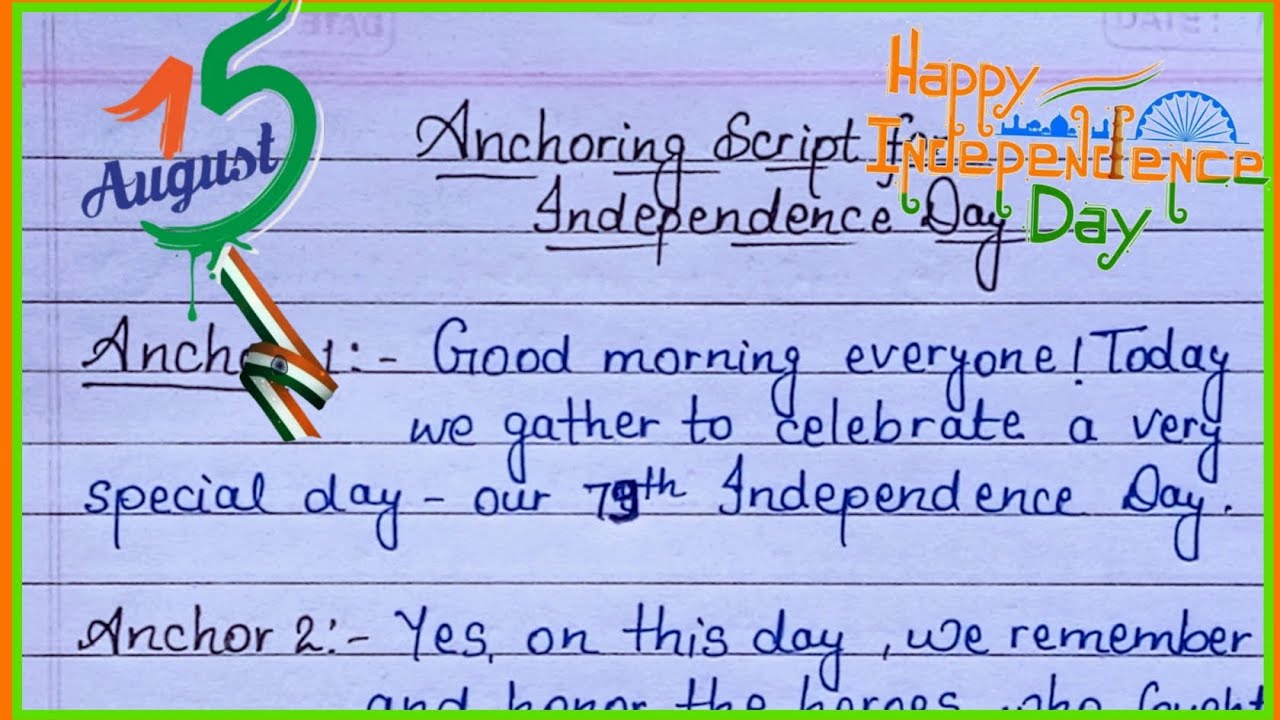 15
August
Happy
Independence
Day
DATE
Anchoring Script for
Independence Day
Anchor 1:- Good morning everyone! Today
we gather to celebrate a very
special day - our 79th Independence Day.
Anchor 2:- Yes, on this day, we remember
and honor the heroes who fought